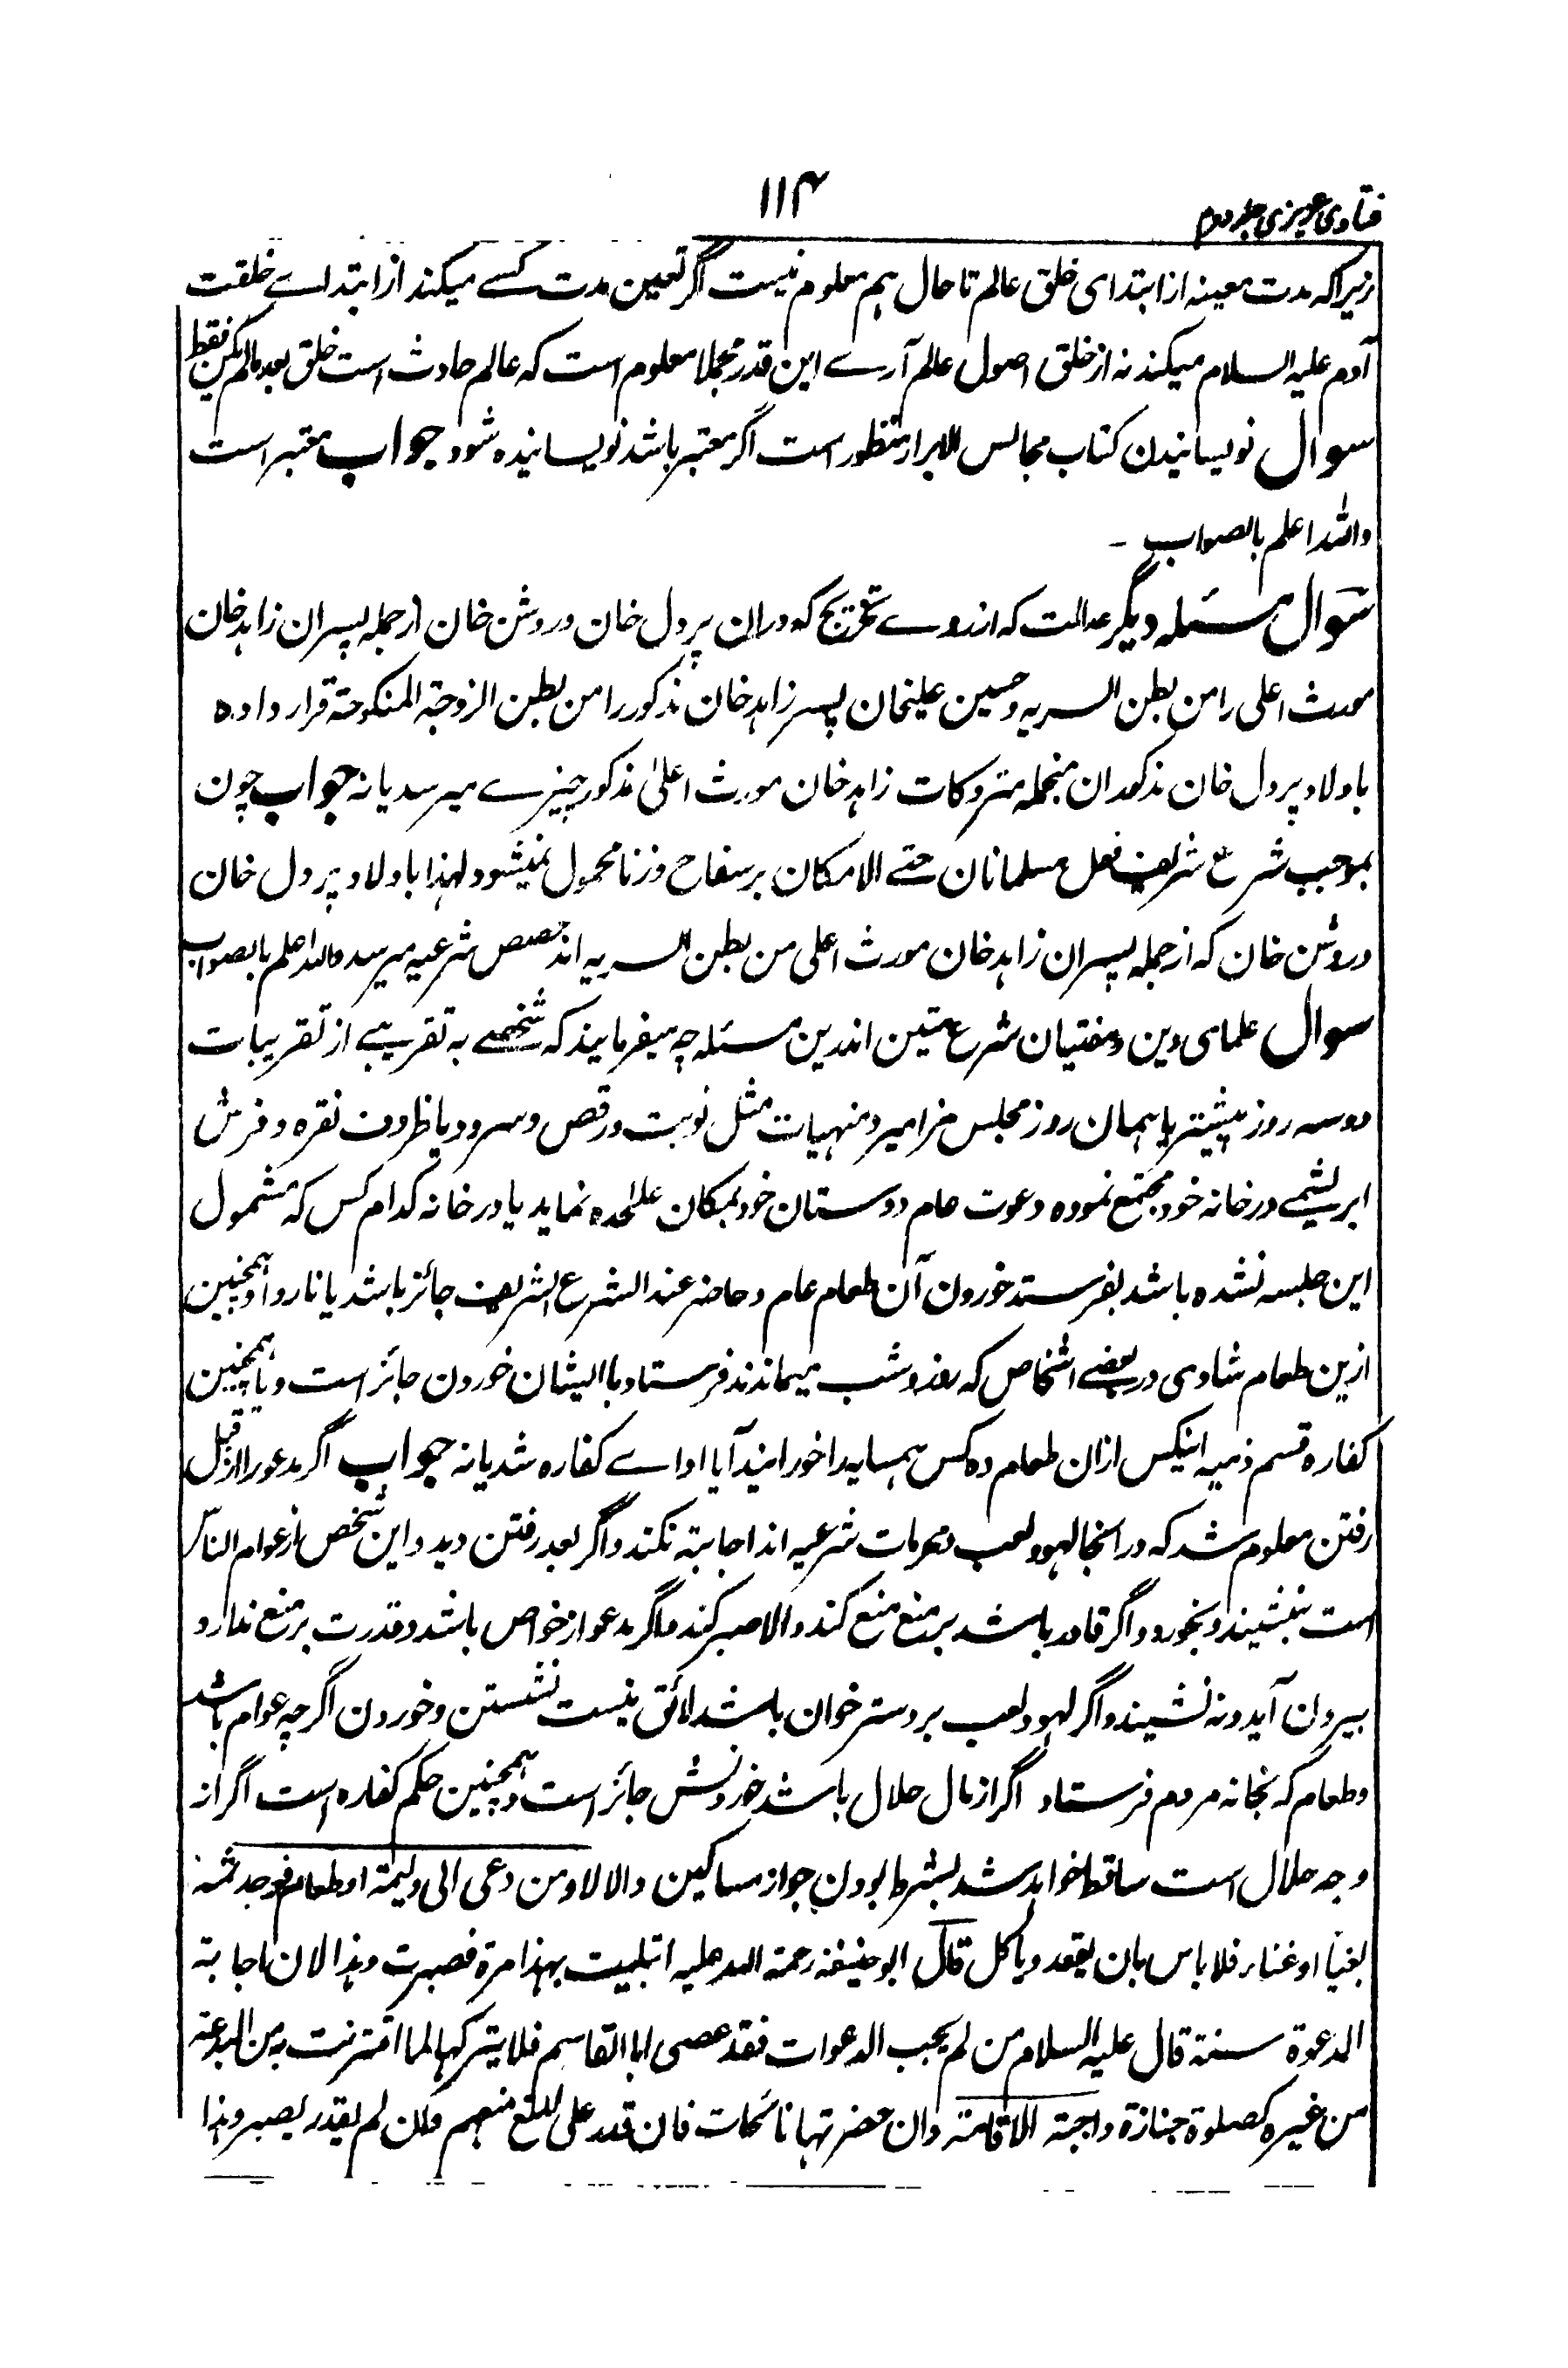 فتاوی عزیزی جلد دوم
۱۱۴
زیراکه مدت معینه از ابتدای خلق عالم تا حال هم معلوم نیست اگر تعین مدت کسے میکند از ابتداے خلقت
آدم علیه السلام میکند نه از خلق اصول عالم آرے این قدر مجملا معلوم است که عالم حادث است خلق بعد مالم یکن فقط
سوال نویسانیدن کتاب مجالس الابرار منظور است اگر معتبر باشد نویسانیده شود جواب معتبر است
والله اعلم بالصواب -
سوال مسئله دیگر عدالت که از روے تخریج که دران پر دل خان و روشن خان از جمله پسران زاهد خان
مورث اعلی را من بطن السریه و حسین علیخان پسر زاهد خان مذکور را من بطن الزوجة المنکوحة قرار داده
باولاد پر دل خان مذکور ان منجمله متروکات زاهد خان مورث اعلیٰ مذکور چیزے میرسد یا نه جواب چون
بموجب شرع شریف فعل مسلمانان حتے الامکان بر سفاح و زنا محمول نمیشود لهذا باولاد پر دل خان
و روشن خان که از جمله پسران زاهد خان مورث اعلی من بطن السریه اند حصص شرعیه میرسد والله اعلم بالصواب
سوال علمای دین و مفتیان شرع متین اندرین مسئله چه میفرمایند که شخصے به تقریبے از تقریبات
دو سه روز پیشتر یا همان روز مجلس مزامیر و منهیات مثل نوبت و رقص و سرود یا ظروف نقره و فرش
ابریشمے در خانه خود مجتمع نموده دعوت عام دوستان خود بمکان علٰحده نماید یا در خانه کدام کس که مشمول
این جلسه نشده باشد بفرستد خوردن آن طعام عام و حاضر عند الشرع الشریف جائز باشد یا ناروا و همچنین
ازین طعام شادی در بعضے اشخاص که روز و شب میماندند فرستاد با ایشان خوردن جائز است و یا همچنین
کفاره قسم ذمیه اینکس ازان طعام ده کس همسایه را خورانید آیا اداے کفاره شد یا نه جواب اگر مدعو را از قبل
رفتن معلوم شد که در آنجا لهو و لعب و محرمات شرعیه اند اجابته نکند و اگر بعد رفتن دید و این شخص از عوام الناس
است بنشیند و بخورد و اگر قادر باشد بر منع منع کند والا صبر کند و اگر مدعو از خواص باشد و قدرت بر منع ندارد
بیرون آید و نه نشیند و اگر لهو و لعب بر دستر خوان باشد لائق نیست نشستن و خوردن اگر چه عوام باشد
و طعام که بخانه مردم فرستاد اگر از مال حلال باشد خوردنش جائز است و همچنین حکم کفاره است اگر از
وجه حلال است ساقط خواهد شد بشرط بودن جواز مساکین والا لا ومن دعی الی ولیمة او طعام فوجد ثمه
لغیا او غناء فلا باس بان یقعد ویاکل قال ابو حنیفه رحمة الله علیه ابتلیت بهذا مرة فصبرت وهذا لان اجابة
الدعوة سنة قال علیه السلام من لم یجب الدعوات فقد عصی ابا القاسم فلا یترکها لما اقترنت به من البدعة
من غیره کصلوة جنازة واجبة الاقامة وان حضرتها نائحات فان قدر علی المنع منعهم وان لم یقدر یصبر وهذا